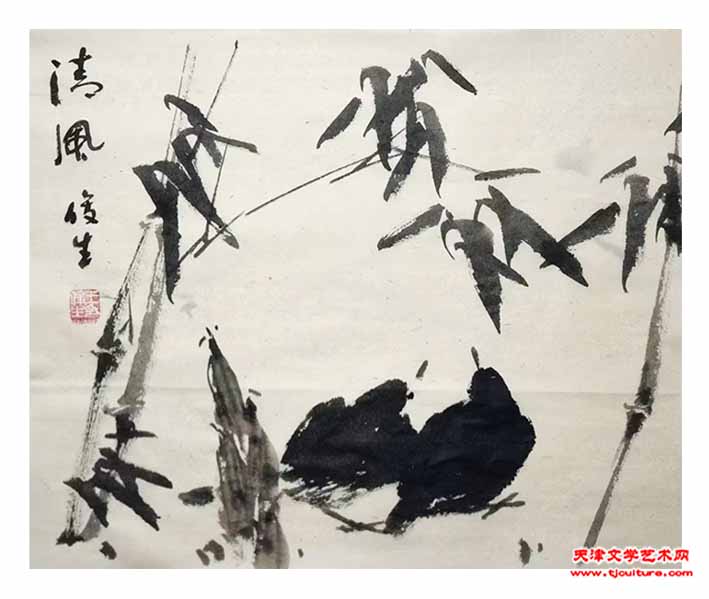 清风
俊生
天津文学艺术网
www.tjculture.com